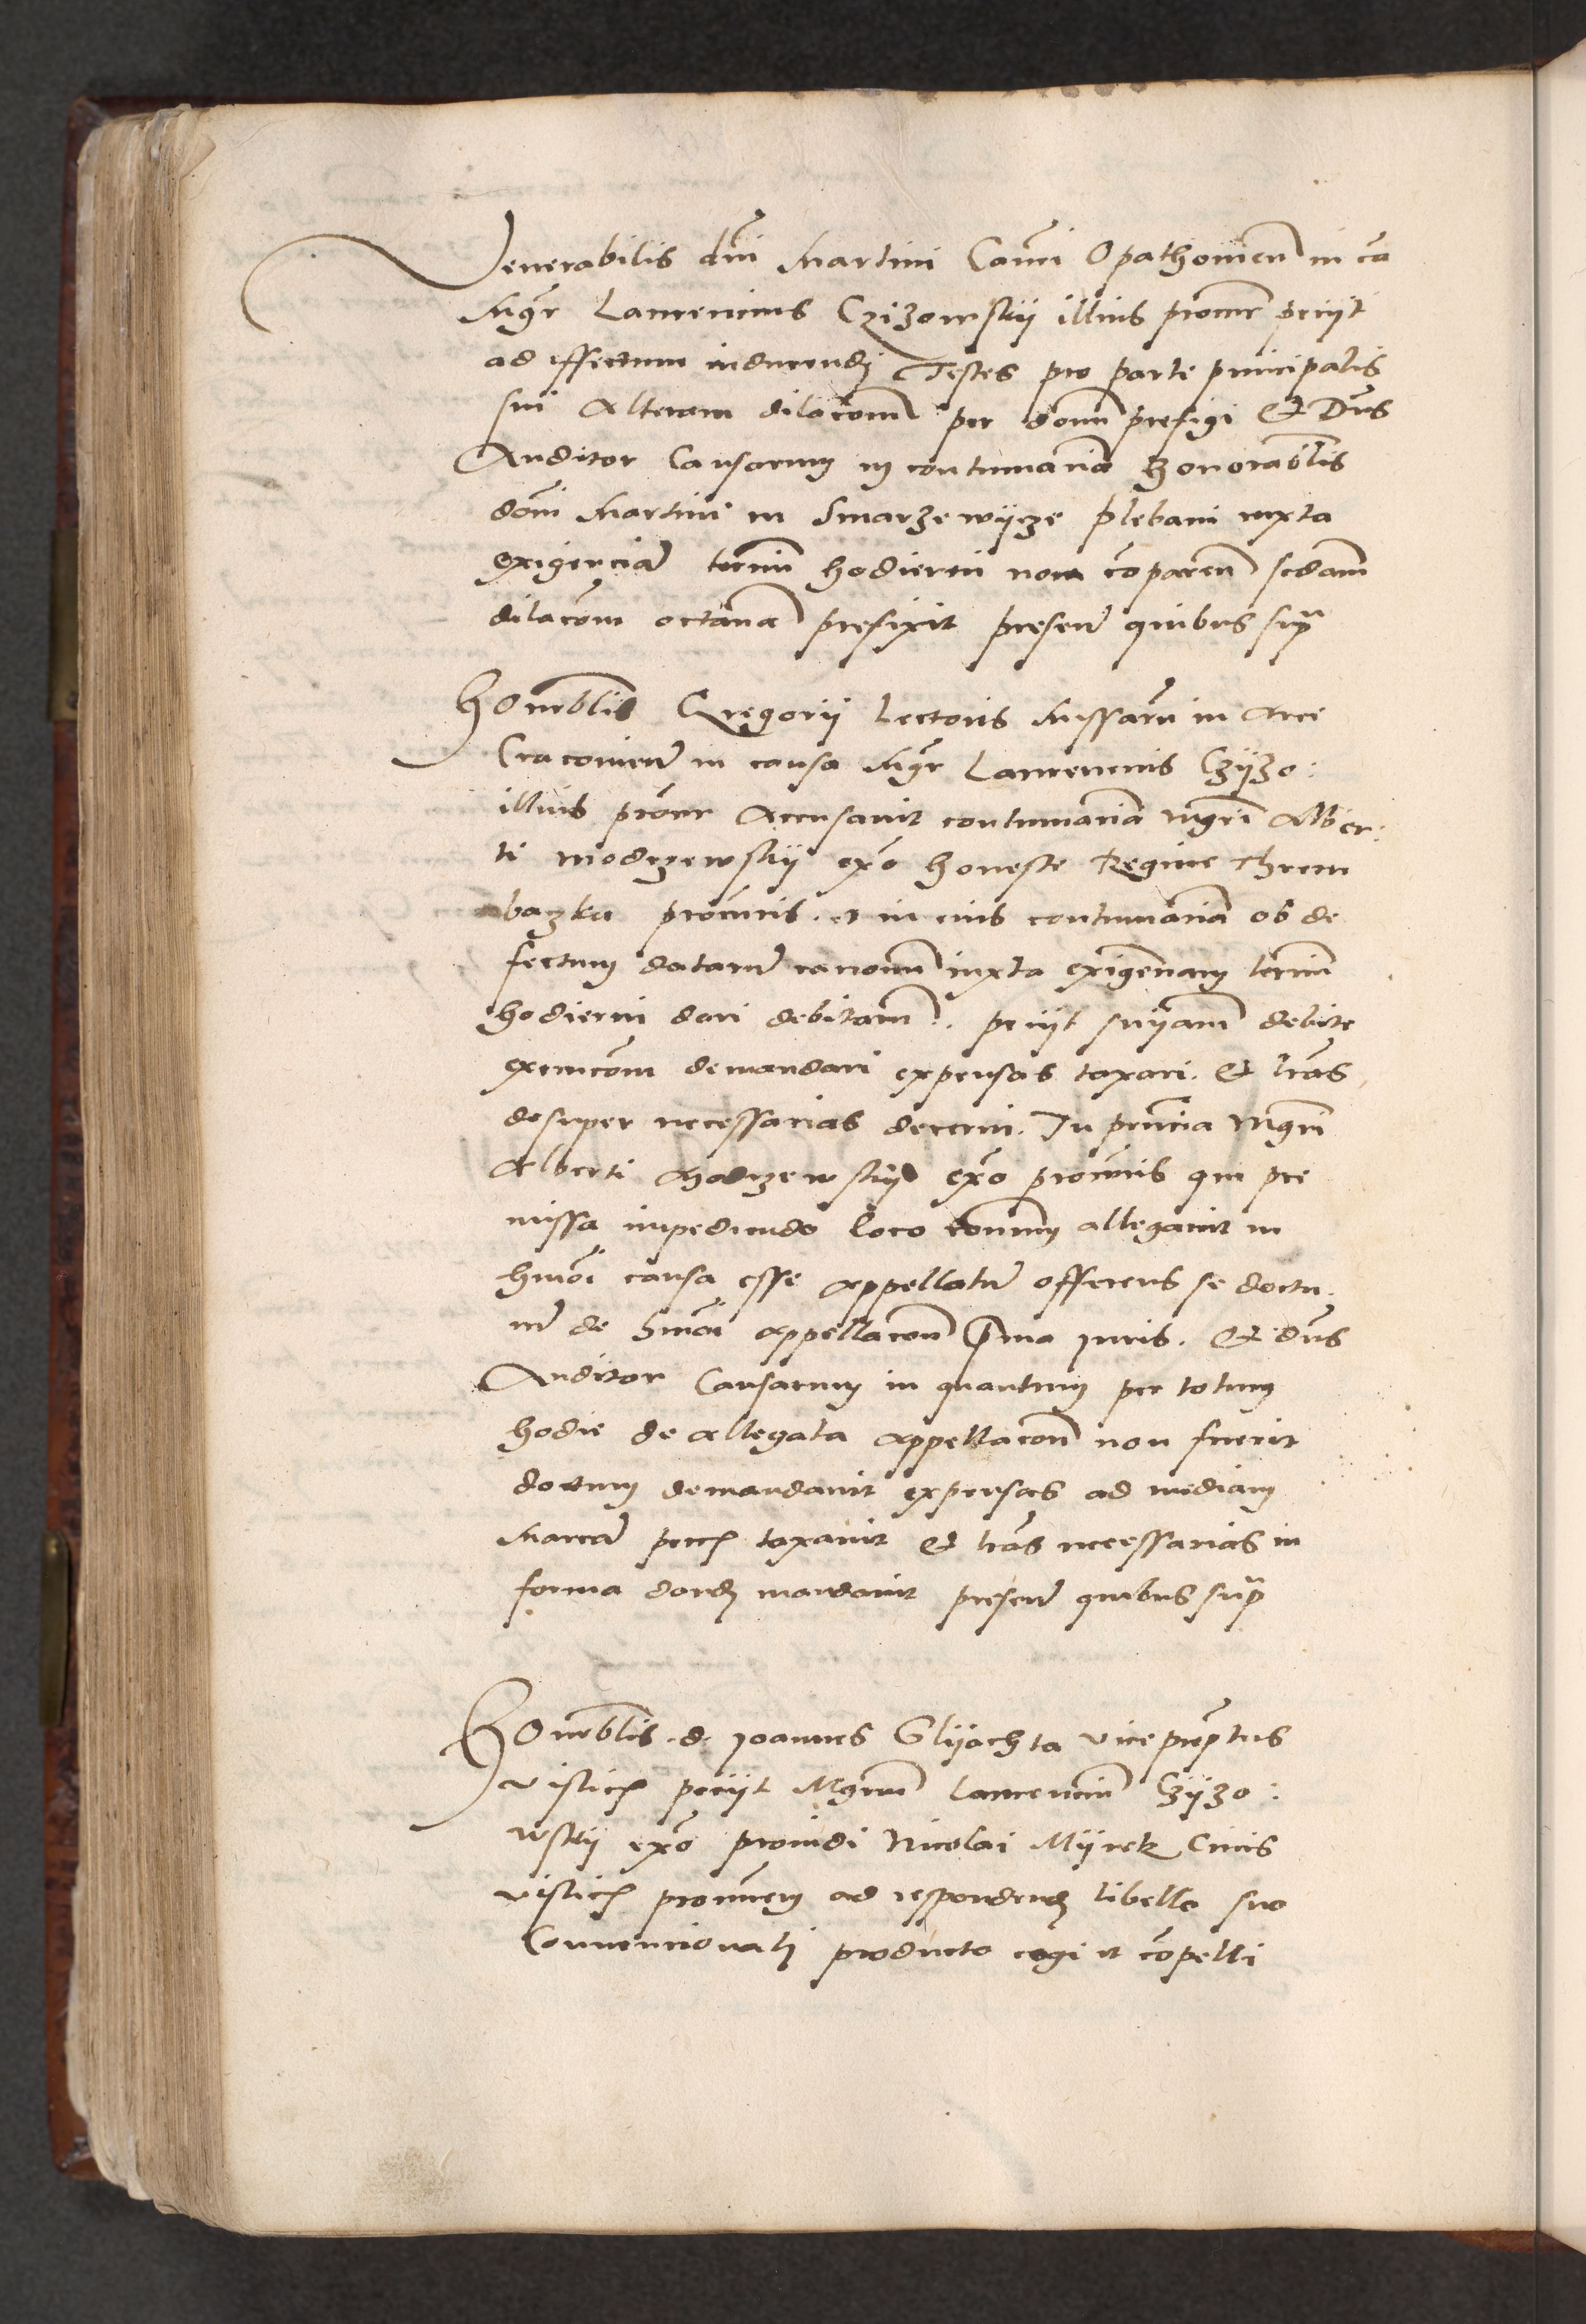 Venerabilis dni Martini Canci Opathoviens in ca
Mgr Laurencius Czizowskij illius procur peciit
ad effectum inducendi Testes pro parte principalis
sui Alteram dilacom per donum prefigi Et Dns
Auditor Causarum in contumacia honorabilis
domi Martini in Smarzewijcze plebani iuxta
exigencia termi hodierni non coparen secdam
dilacom octava prefixit presen quibus supra
Honorblis Gregorij Lectoris Missaru in Arce
Cracovien in causa Mgr Laurencius Czijzo:
illius procur Accusavit contumacia Mgri Alber:
ti Modrzewskij exo honeste Regine
procuris et in eius contumacia ob de
fectum canonum iuxta exigenciam termi
hodierni dari debitam. peciit debite
execucom demandari expensas taxari. Et lras
desuper necessarias decerni. In prncia Mgri
Alberti Modrzewskij exo procuris qui pre
missa impediendo loco comuni allegavit in
hmoi causa esse appellatu offerens se doctu
ru de hmoi appellacom iuris. Et dns
Auditor Causarum in quantum per totum
hodie de allegata appellacom non fuerit
doctum demandavit expensas ad mediam
Marca taxavit Et lras necessarias in
forma dand mandavit presen quibus supra
Honorblis d. Joannes Glijachta viceprptus
vislic peciit Mgrum Laurenciu Czijzo:
wskij exo providi Nicolai Mijrek Civis
vislic procurem ad respondend libello suo
Convencionali producto cogi et copelli